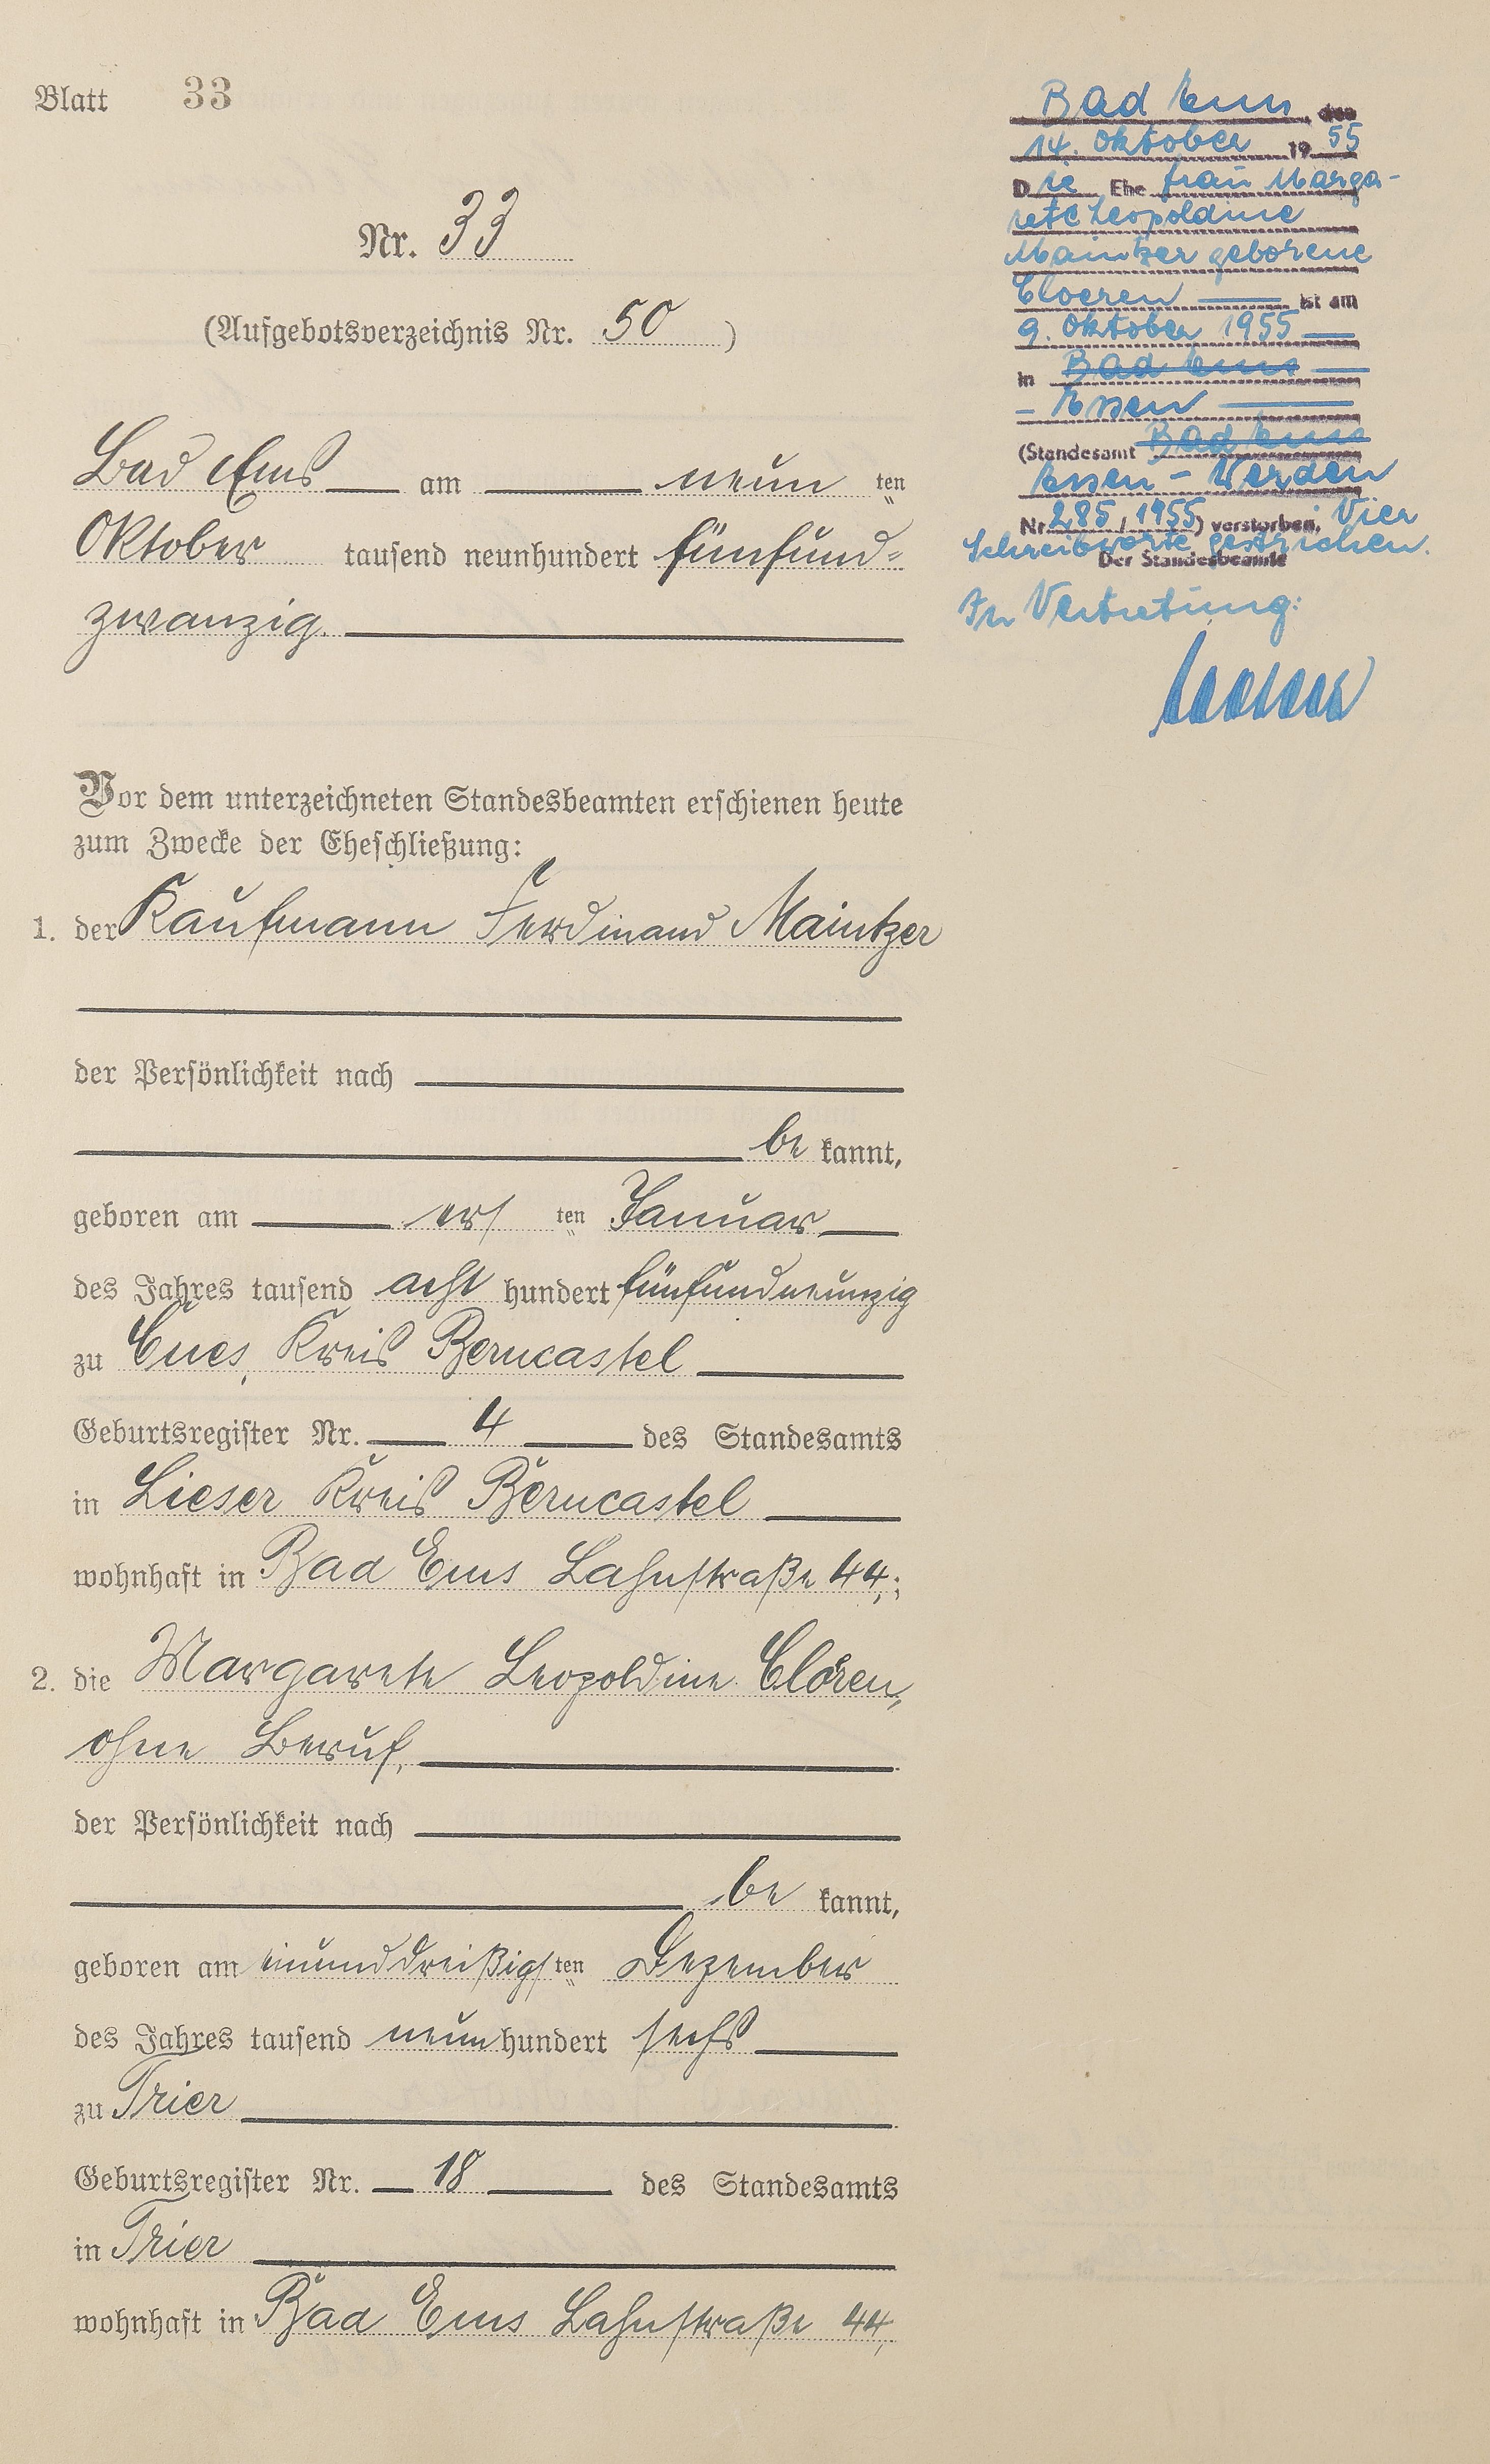 Blatt 33
Nr. 33
(Aufgebotsverzeichnis Nr. 50)
Bad Ems am neun ten
Oktober tausend neunhundert fünfund-
zwanzig.
Vor dem unterzeichneten Standesbeamten erschienen heute
zum Zwecke der Eheschließung:
1. der Kaufmann Ferdinand Maintzer
der Persönlichkeit nach
be kannt,
geboren am ers ten Januar
des Jahres tausend acht hundert fünfundneunzig
zu Cues, Kreis Berncastel
Geburtsregister Nr. 4 des Standesamts
in Lieser Kreis Berncastel
wohnhaft in Bad Ems Lahnstraße 44,;
2. die Margarete Leopoldine Cloeren,
ohne Beruf,
der Persönlichkeit nach
be kannt,
geboren am einunddreißigs ten Dezember
des Jahres tausend neun hundert sechs
zu Trier
Geburtsregister Nr. 18 des Standesamts
in Trier
wohnhaft in Bad Ems Lahnstraße 44,
Bad Ems, den
14. Oktober 1955
Die Ehefrau Marga-
rete Leopoldine
Maintzer geborene
Cloeren ist am
9. Oktober 1955
in Bad Ems
- Essen
(Standesamt Bad Ems
Essen - Werden
Nr. 285/1955) verstorben. Vier
Schreibworte gestrichen.
Der Standesbeamte
In Vertretung: